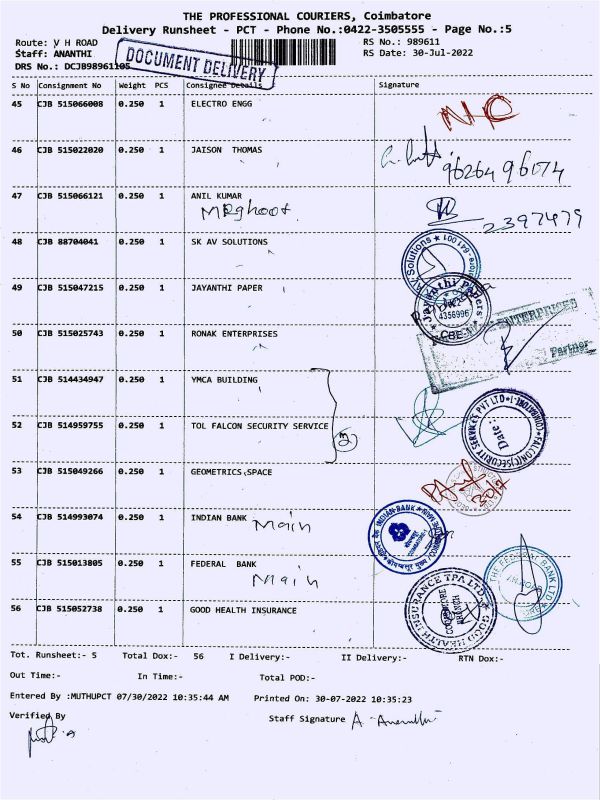 THE PROFESSIONAL COURIERS, Coimbatore
Delivery Runsheet - PCT - Phone No.:0422-3505555 - Page No.:5
Route: V H ROAD RS No.: 989611
Staff: ANANTHI RS Date: 30-Jul-2022
DRS No.: DCJB98961105
DOCUMENT DELIVERY
S No Consignment No Weight PCS Consignee Details Signature
45 CJB 515066008 0.250 1 ELECTRO ENGG
46 CJB 515022020 0.250 1 JAISON THOMAS
9626496074
47 CJB 515066121 0.250 1 ANIL KUMAR
2397479
48 CJB 88704041 0.250 1 SK AV SOLUTIONS
AV Solutions
49 CJB 515047215 0.250 1 JAYANTHI PAPER
Jayanthi Papers
4356996
CBE
50 CJB 515025743 0.250 1 RONAK ENTERPRISES
ENTERPRISES
Partner
51 CJB 514434947 0.250 1 YMCA BUILDING
52 CJB 514959755 0.250 1 TOL FALCON SECURITY SERVICE
23
FALCON(C)SECURITY SERVICES PVT LTD
Date :
53 CJB 515049266 0.250 1 GEOMETRICS SPACE
30/7
54 CJB 514993074 0.250 1 INDIAN BANK
Main
INDIAN BANK
55 CJB 515013805 0.250 1 FEDERAL BANK
Main
THE FEDERAL BANK LTD
56 CJB 515052738 0.250 1 GOOD HEALTH INSURANCE
GOOD HEALTH INSURANCE TPA LTD
COIMBATORE
BRANCH
Tot. Runsheet:- 5 Total Dox:- 56 I Delivery:- II Delivery:- RTN Dox:-
Out Time:- In Time:- Total POD:-
Entered By :MUTHUPCT 07/30/2022 10:35:44 AM Printed On: 30-07-2022 10:35:23
Verified By Staff Signature A. Ananthi